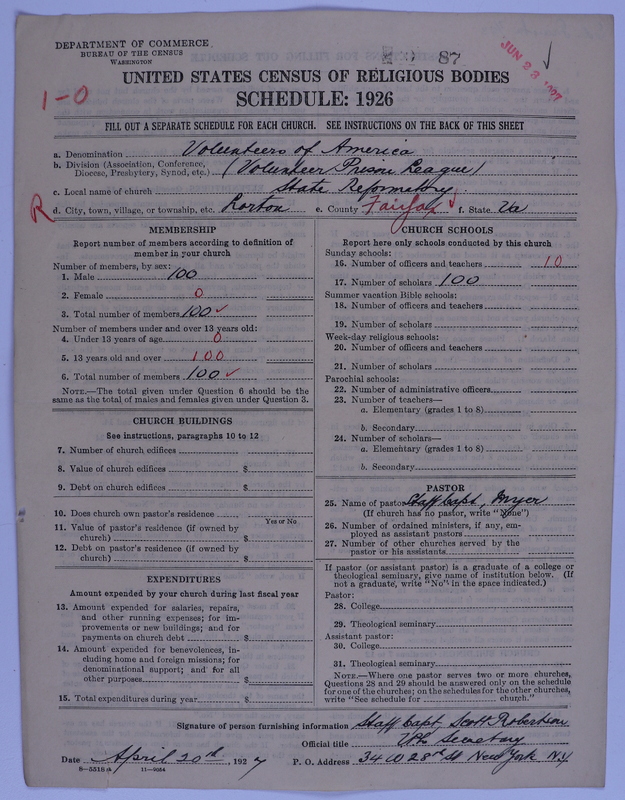 DEPARTMENT OF COMMERCE
BUREAU OF THE CENSUS
WASHINGTON
87
JUN 28 1927
UNITED STATES CENSUS OF RELIGIOUS BODIES
1-0
SCHEDULE: 1926
FILL OUT A SEPARATE SCHEDULE FOR EACH CHURCH. SEE INSTRUCTIONS ON THE BACK OF THIS SHEET
a. Denomination Volunteers of America
b. Division (Association, Conference, Diocese, Presbytery, Synod, etc.) (Volunteer Prison League)
c. Local name of church State Reformatory
R d. City, town, village, or township, etc. Lorton e. County Fairfax f. State Va
MEMBERSHIP
Report number of members according to definition of
member in your church
Number of members, by sex:
1. Male 100
2. Female 0
3. Total number of members 100 ✓
Number of members under and over 13 years old:
4. Under 13 years of age 0
5. 13 years old and over 100
6. Total number of members 100 ✓
NOTE.—The total given under Question 6 should be the
same as the total of males and females given under Question 3.
CHURCH BUILDINGS
See instructions, paragraphs 10 to 12
7. Number of church edifices
8. Value of church edifices $
9. Debt on church edifices $
10. Does church own pastor's residence
Yes or No
11. Value of pastor's residence (if owned by
church) $
12. Debt on pastor's residence (if owned by
church) $
EXPENDITURES
Amount expended by your church during last fiscal year
13. Amount expended for salaries, repairs,
and other running expenses; for im-
provements or new buildings; and for
payments on church debt $
14. Amount expended for benevolences, in-
cluding home and foreign missions; for
denominational support; and for all
other purposes $
15. Total expenditures during year $
CHURCH SCHOOLS
Report here only schools conducted by this church
Sunday schools:
16. Number of officers and teachers 10
17. Number of scholars 100
Summer vacation Bible schools:
18. Number of officers and teachers
19. Number of scholars
Week-day religious schools:
20. Number of officers and teachers
21. Number of scholars
Parochial schools:
22. Number of administrative officers
23. Number of teachers—
a. Elementary (grades 1 to 8)
b. Secondary
24. Number of scholars—
a. Elementary (grades 1 to 8)
b. Secondary
PASTOR
25. Name of pastor Staff Capt, Myer
(If church has no pastor, write "None")
26. Number of ordained ministers, if any, em-
ployed as assistant pastors
27. Number of other churches served by the
pastor or his assistants
If pastor (or assistant pastor) is a graduate of a college or
theological seminary, give name of institution below. (If
not a graduate, write "No" in the space indicated.)
Pastor:
28. College
29. Theological seminary
Assistant pastor:
30. College
31. Theological seminary
NOTE.—Where one pastor serves two or more churches,
Questions 28 and 29 should be answered only on the schedule
for one of the churches; on the schedules for the other churches,
write "See schedule for church."
Signature of person furnishing information Staff Capt, Scott Robertson
Official title Secretary
Date April 20th, 1927 P. O. Address 34 W 28th St New York N.Y.
8—5518a 11—9054